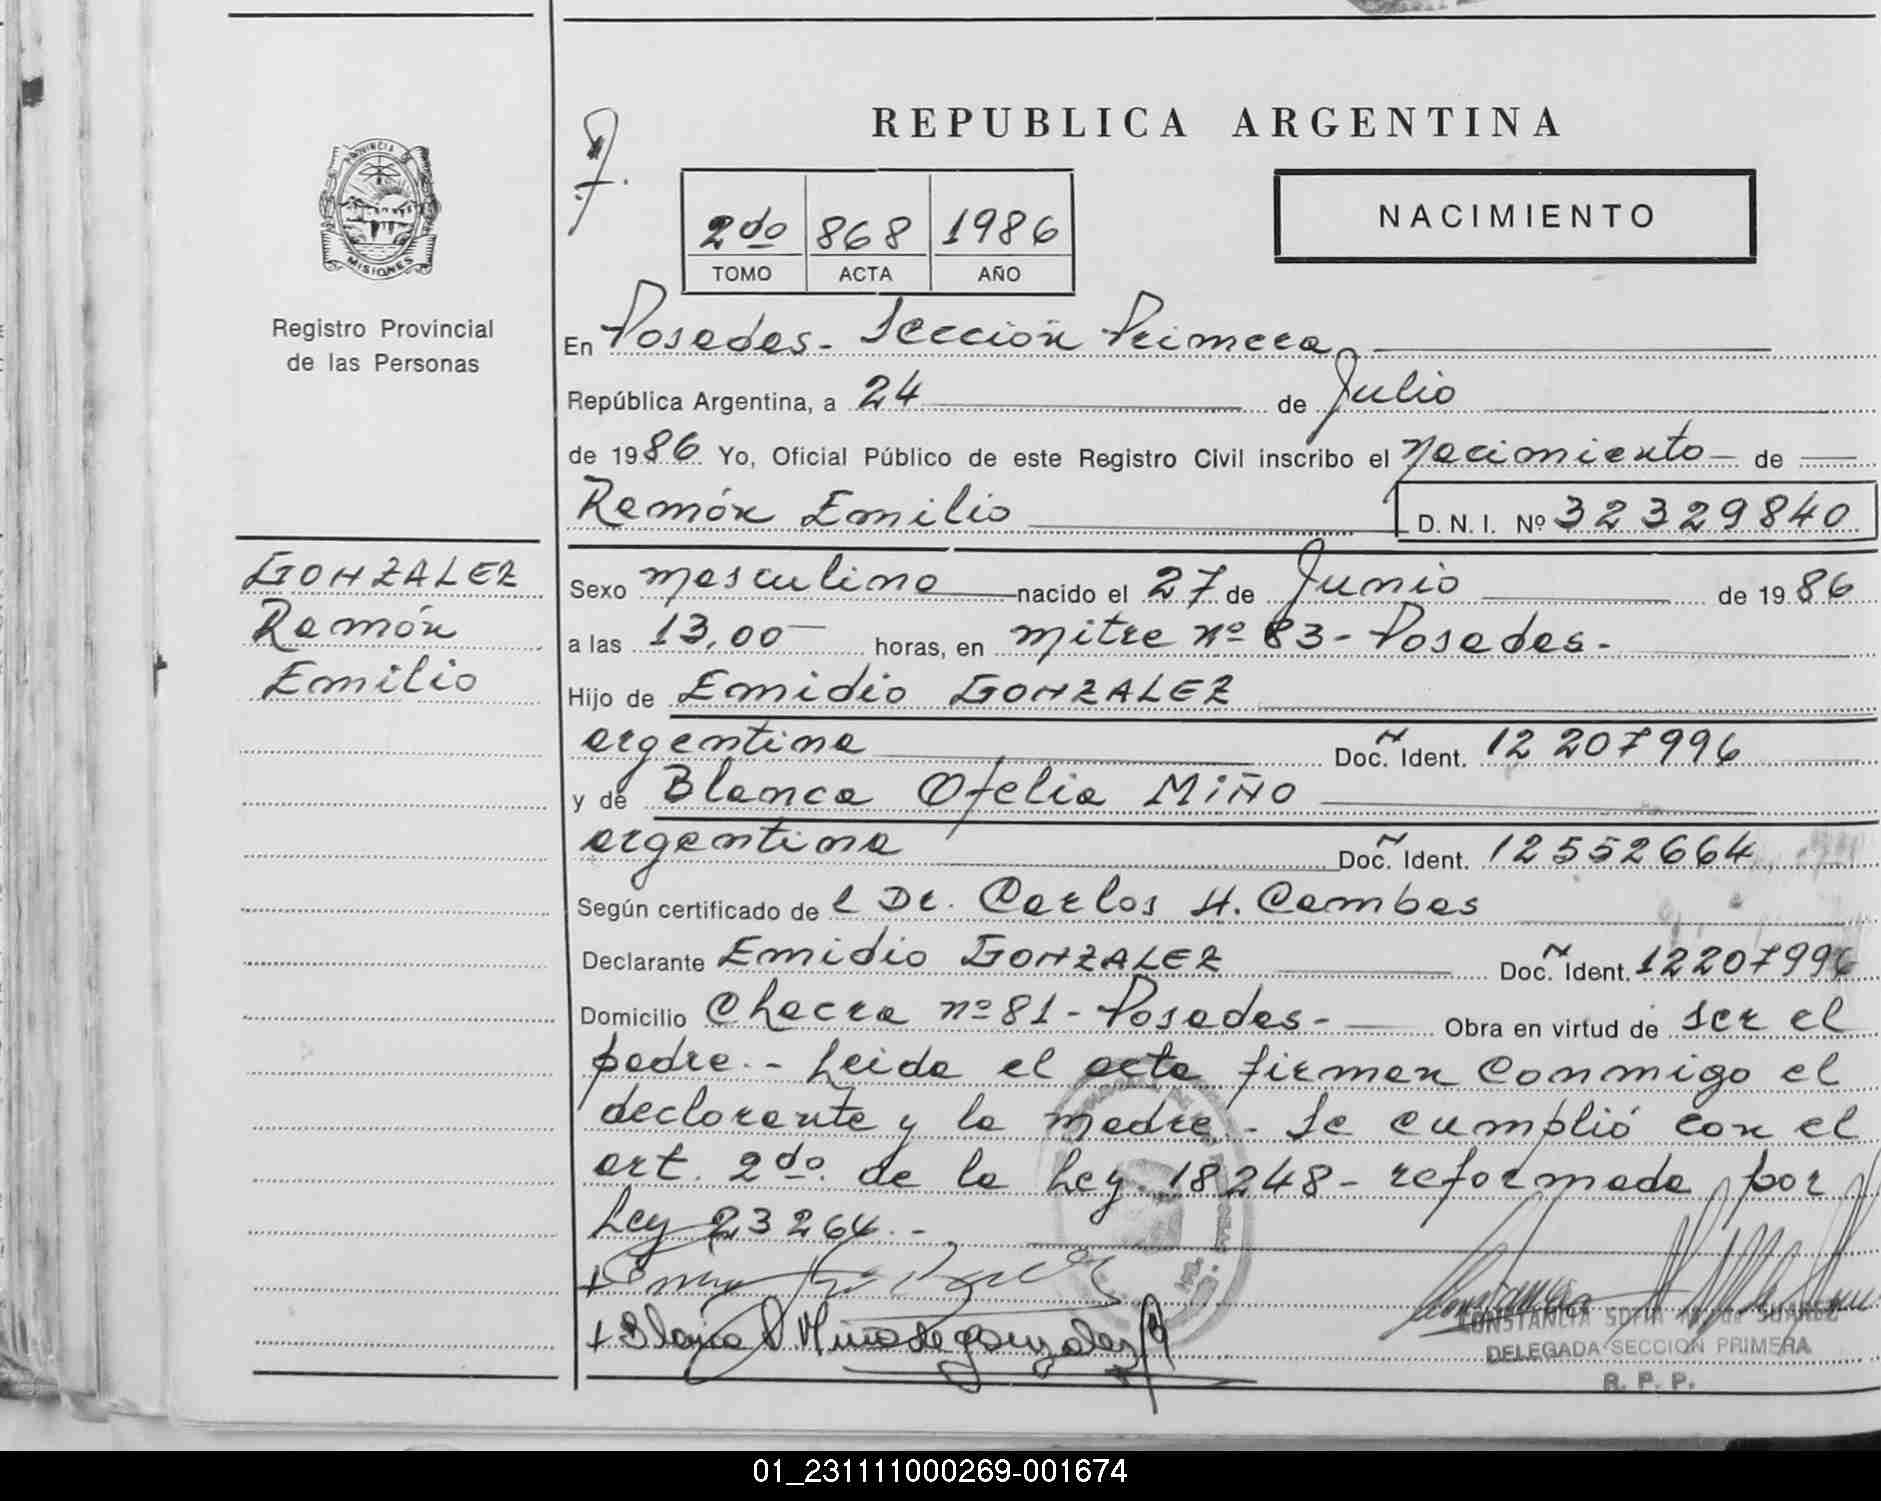 REPUBLICA ARGENTINA
PROVINCIA DE
MISIONES
Registro Provincial
de las Personas
2do 868 1986
TOMO ACTA AÑO
NACIMIENTO
En Posadas - Sección Primera
República Argentina, a 24 de Julio
de 1986 Yo, Oficial Público de este Registro Civil inscribo el Nacimiento de
Ramón Emilio D. N. I. Nº 32329840
GONZALEZ
Ramón
Emilio
Sexo masculino nacido el 27 de Junio de 1986
a las 13,00 horas, en Mitre nº 83 - Posadas -
Hijo de Emidio GONZALEZ
argentina Doc. Ident. 12 207996
y de Blanca Ofelia MIÑO
argentina Doc. Ident. 12552664
Según certificado de l Dr. Carlos H. Cambas
Declarante Emidio GONZALEZ Doc. Ident. 12207996
Domicilio Chacra nº 81 - Posadas - Obra en virtud de ser el
padre. - Leida el acta firman conmigo el
declarante y la madre. - Se cumplió con el
art. 2do. de la Ley 18248 - reformada por
Ley 23264. -
Blanca O Miño de Gonzalez
CONSTANCIA SOFIA de SUAREZ
DELEGADA SECCION PRIMERA
R. P. P.
01_231111000269-001674